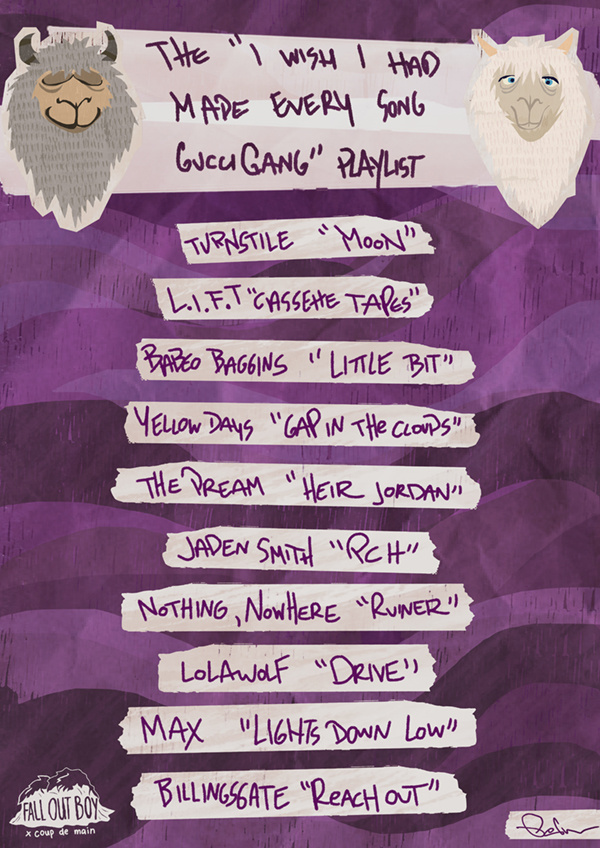 THE "I WISH I HAD
MADE EVERY SONG
GUCCI GANG" PLAYLIST
TURNSTILE "MOON"
L.I.F.T "CASSETTE TAPES"
BABEO BAGGINS "LITTLE BIT"
YELLOW DAYS "GAP IN THE CLOUDS"
THE DREAM "HEIR JORDAN"
JADEN SMITH "PCH"
NOTHING, NOWHERE "RUINER"
LOLAWOLF "DRIVE"
MAX "LIGHTS DOWN LOW"
BILLINGSGATE "REACH OUT"
FALL OUT BOY
x coup de main